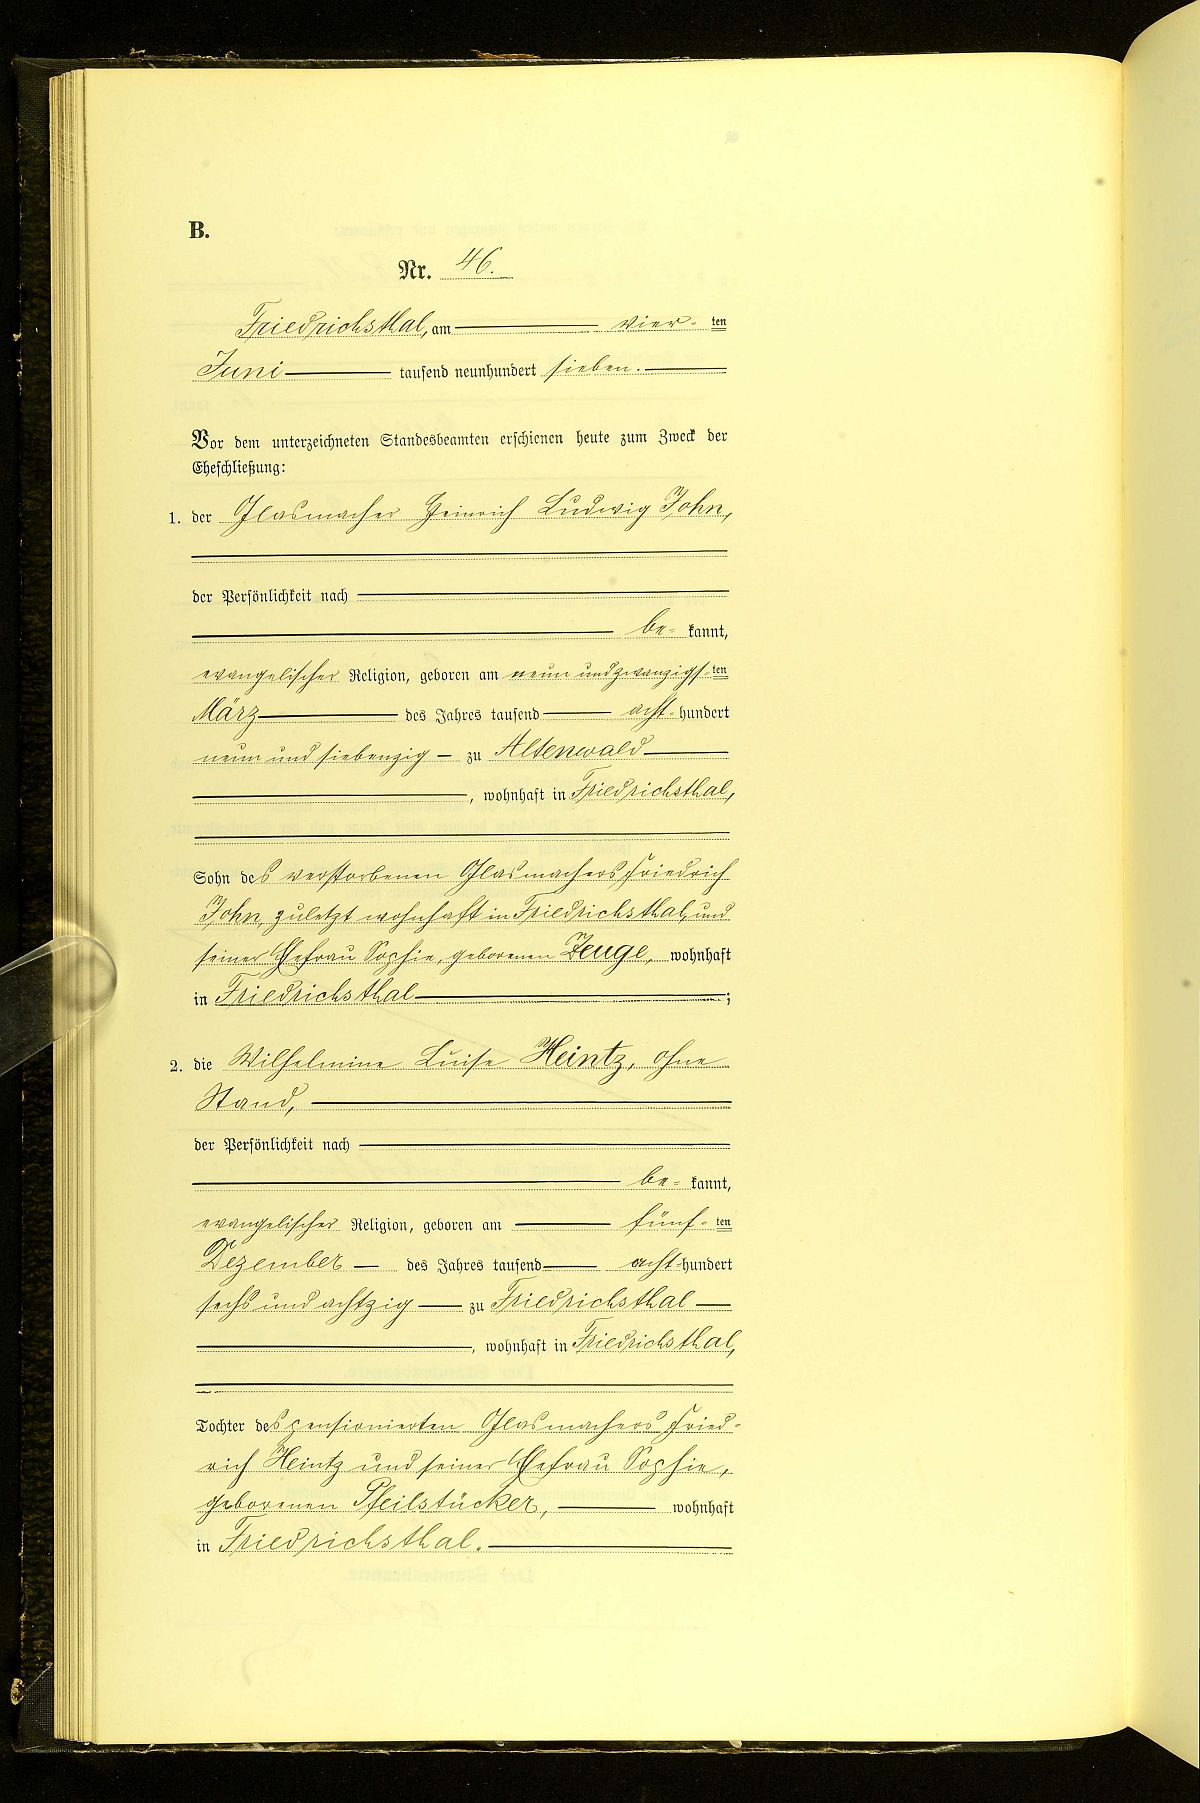 B.
Nr. 46.
Friedrichsthal, am vier- ten
Juni tausend neunhundert sieben.
Vor dem unterzeichneten Standesbeamten erschienen heute zum Zweck der
Eheschließung:
1. der Glasmacher Heinrich Ludwig John,
der Persönlichkeit nach
be= kannt,
evangelischer Religion, geboren am neun und zwanzigs- ten
März des Jahres tausend acht- hundert
neun und siebenzig zu Altenwald
, wohnhaft in Friedrichsthal,
Sohn des verstorbenen Glasmachers Friedrich
John, zuletzt wohnhaft in Friedrichsthal, und
seiner Ehefrau Sophie, geborenen Zeuge, wohnhaft
in Friedrichsthal ;
2. die Wilhelmine Luise Heintz, ohne
Stand,
der Persönlichkeit nach
be= kannt,
evangelischer Religion, geboren am fünf- ten
Dezember des Jahres tausend acht- hundert
sechs und achtzig zu Friedrichsthal
, wohnhaft in Friedrichsthal,
Tochter des pensionierten Glasmachers Fried-
rich Heintz und seiner Ehefrau Sophie,
geborenen Pfeilstücker, wohnhaft
in Friedrichsthal.